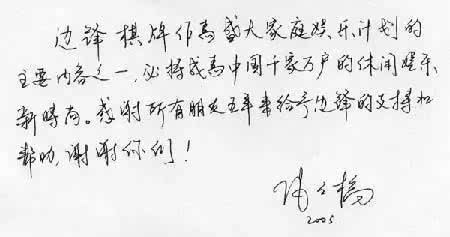 边锋棋牌作为盛大家庭娱乐计划的
主要内容之一,必将成为中国千家万户的休闲娱乐
新时尚。感谢所有朋友五年来给予边锋的支持和
帮助,谢谢你们!
陈天桥
2005